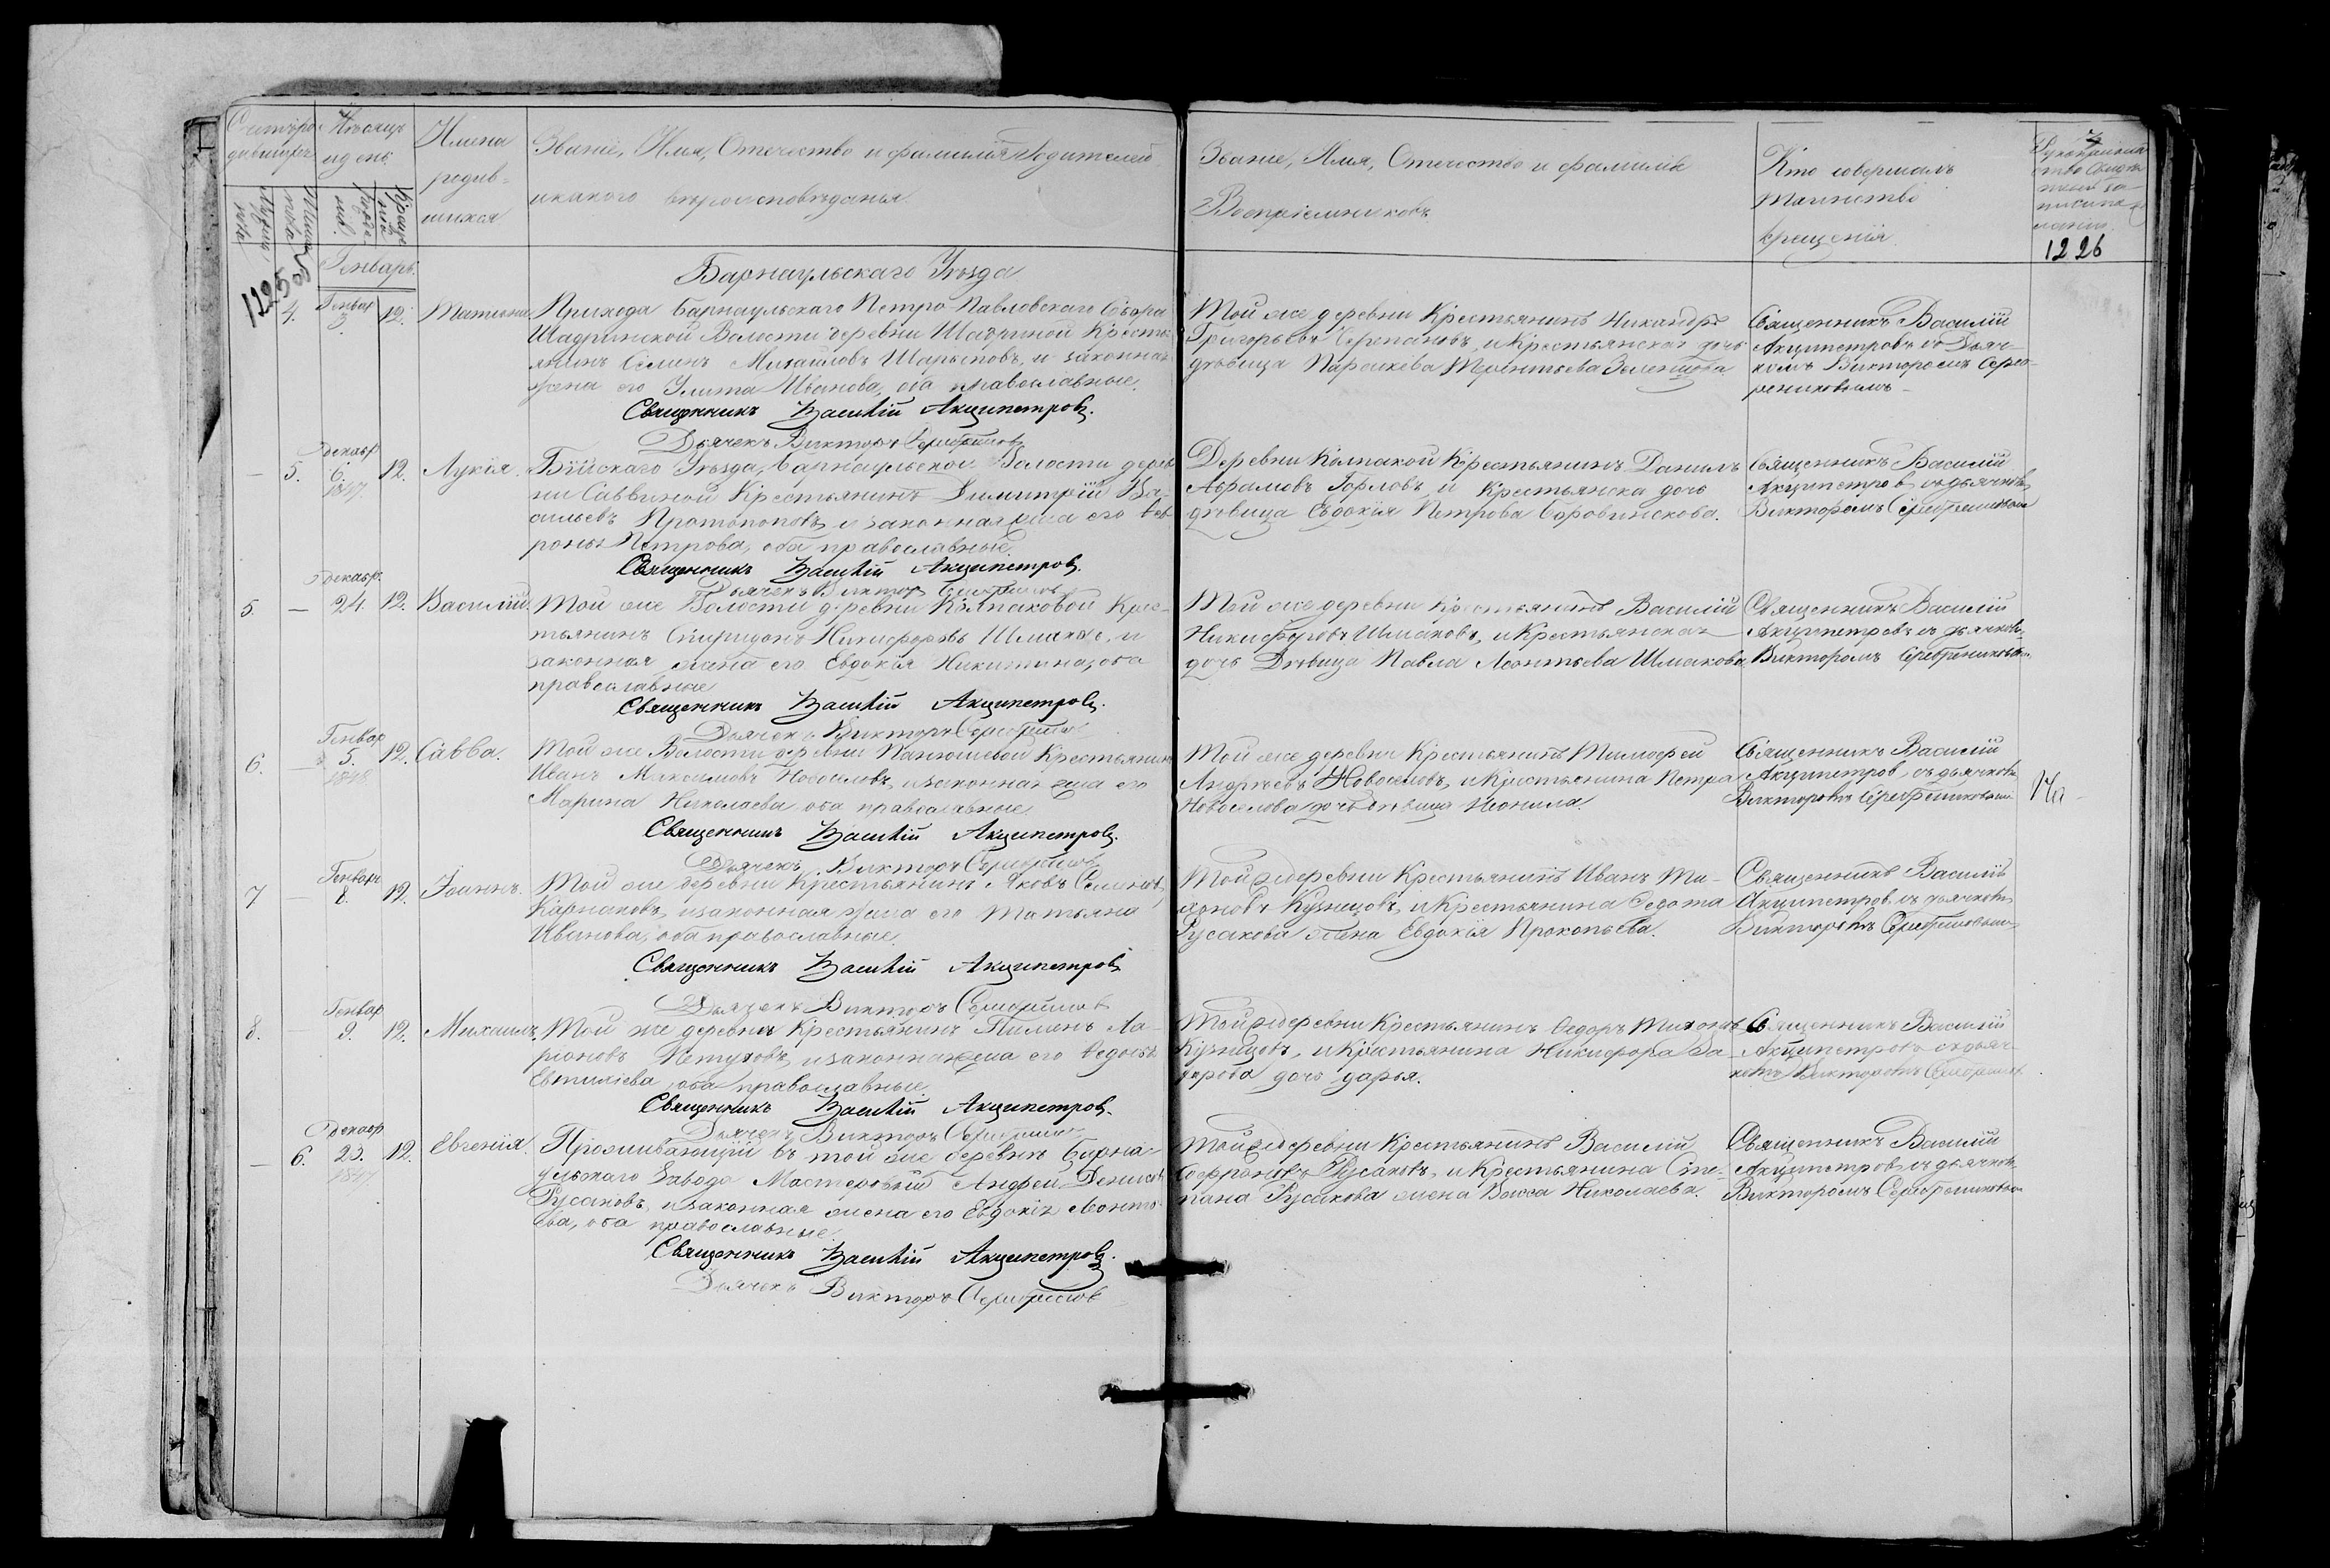 Счетъ ро
дившихся
Мѣсяцъ
и день.
Имена
родив-
шихся
Званіе, Имя, Отчество и фамилія Родителей
и какого вѣроисповѣданія
Званіе, Имя, Отечество и фамилія
Воспріемниковъ
Кто совершалъ
таинство
крещенія
мужеска
пола
женска
пола
рожде
нія.
креще
нія
1225об
1226
Генварь.
Барнаульскаго Уѣзда
4.
Генвар
3.
12.
Татіана
Прихода Барнаульскаго Петро Павловскаго Собора
Шадринской Волости деревни Шадриной Кресть
янинъ Семенъ Михайловъ Шарыповъ, и законная
жена его Улита Иванова, оба православные.
Священникъ Василій Акципетровъ.
Дьячекъ Викторъ Серебрениковъ
Той же деревни Крестьянинъ Никандръ
Григорьевъ Черепановъ, и Крестьянская дочь
дѣвица Параскева Терентьева Зеленцова
Священникъ Василій
Акципетровъ съ Дьяч-
комъ Викторомъ Сереб-
рениковымъ
— 5.
декабр
6.
1847.
12.
Лукія.
Бійскаго Уѣзда, Барнаульской Волости дерев
ни Саввиной Крестьянинъ Димитрій Ва-
сильевъ Протопоповъ, и законная жена его Фев
ронья Петрова, оба православные.
Священникъ Василій Акципетровъ.
Дьячекъ Викторъ Серебрениковъ
Деревни Колпакой Крестьянинъ Данилъ
Абрамовъ Горловъ, и Крестьянска дочь
дѣвица Евдокія Петрова Боровинскова.
Священникъ Василій
Акципетровъ съ дьячком
Викторомъ Серебрениковым
5 —
декабр.
24.
12.
Василій.
Той же Волости деревни Колпаковой Крес-
тьянинъ Спиридонъ Никифоровъ Шмаковъ, и
законная жена его Евдокія Никитина, оба
православные
Священникъ Василій Акципетровъ.
Дьячекъ Викторъ Серебрениковъ
Той же деревни Крестьянинъ Василій
Никифоровъ Шмаковъ, и Крестьянская
дочь Дѣвица Павла Леонтьева Шмакова
Священникъ Василій
Акципетровъ съ дьячком
Викторомъ Серебрениковым
6. —
Генвар
5.
1848
12.
Савва.
Той же Волости деревни Панюшевой Крестьянин
Иванъ Максимовъ Новоселовъ, и законная жена его
Марина Николаева оба православные
Священникъ Василій Акципетровъ.
Дьячекъ Викторъ Серебрениковъ
Той же деревни Крестьянинъ Тимофей
Андреевъ Новоселовъ, и Крестьянина Петра
Новоселова дочь дѣвица Неонила.
Священникъ Василій
Акципетровъ съ дьячком
Викторомъ Серебрениковым
7 —
Генвар
8.
12.
Іоаннъ.
Той же деревни Крестьянинъ Яковъ Семеновъ
Карнаковъ, и законная жена его Татьяна
Иванова, оба православные.
Священникъ Василій Акципетровъ
Дьячекъ Викторъ Серебрениковъ
Той же деревни Крестьянинъ Иванъ Ти-
хоновъ Кузнецовъ, и Крестьянина Федота
Русакова жена Евдокія Прокопьева.
Священникъ Василій
Акципетровъ съ дьячком
Викторомъ Серебрениковым
8.
Генвар
9.
12.
Михаилъ.
Той же деревни Крестьянинъ Пименъ Ла-
ріоновъ Петуховъ, и законная жена его Федосья
Евтихіева, оба православные.
Священникъ Василій Акципетровъ.
Дьячекъ Викторъ Серебрениковъ
Той же деревни Крестьянинъ Федоръ Тихоновъ
Кузнецовъ, и Крестьянина Никифора За-
харова дочь Дарья.
Священникъ Василій
Акципетровъ съ дьяч-
комъ Викторомъ Серебрениковым
— 6.
декабр
23.
1847
12.
Евгенія.
Проживающій въ той же деревнѣ Барна-
ульскаго Завода Мастеровый Андрей Денисовъ
Русаковъ, и законная жена его Евдокія Леонть
ева, оба православные.
Священникъ Василій Акципетровъ.
Дьячекъ Викторъ Серебрениковъ
Той же деревни Крестьянинъ Василій
Софроновъ Русаковъ, и Крестьянина Сте-
пана Русакова жена Васса Николаева.
Священникъ Василій
Акципетровъ съ дьячком
Викторомъ Серебрениковым